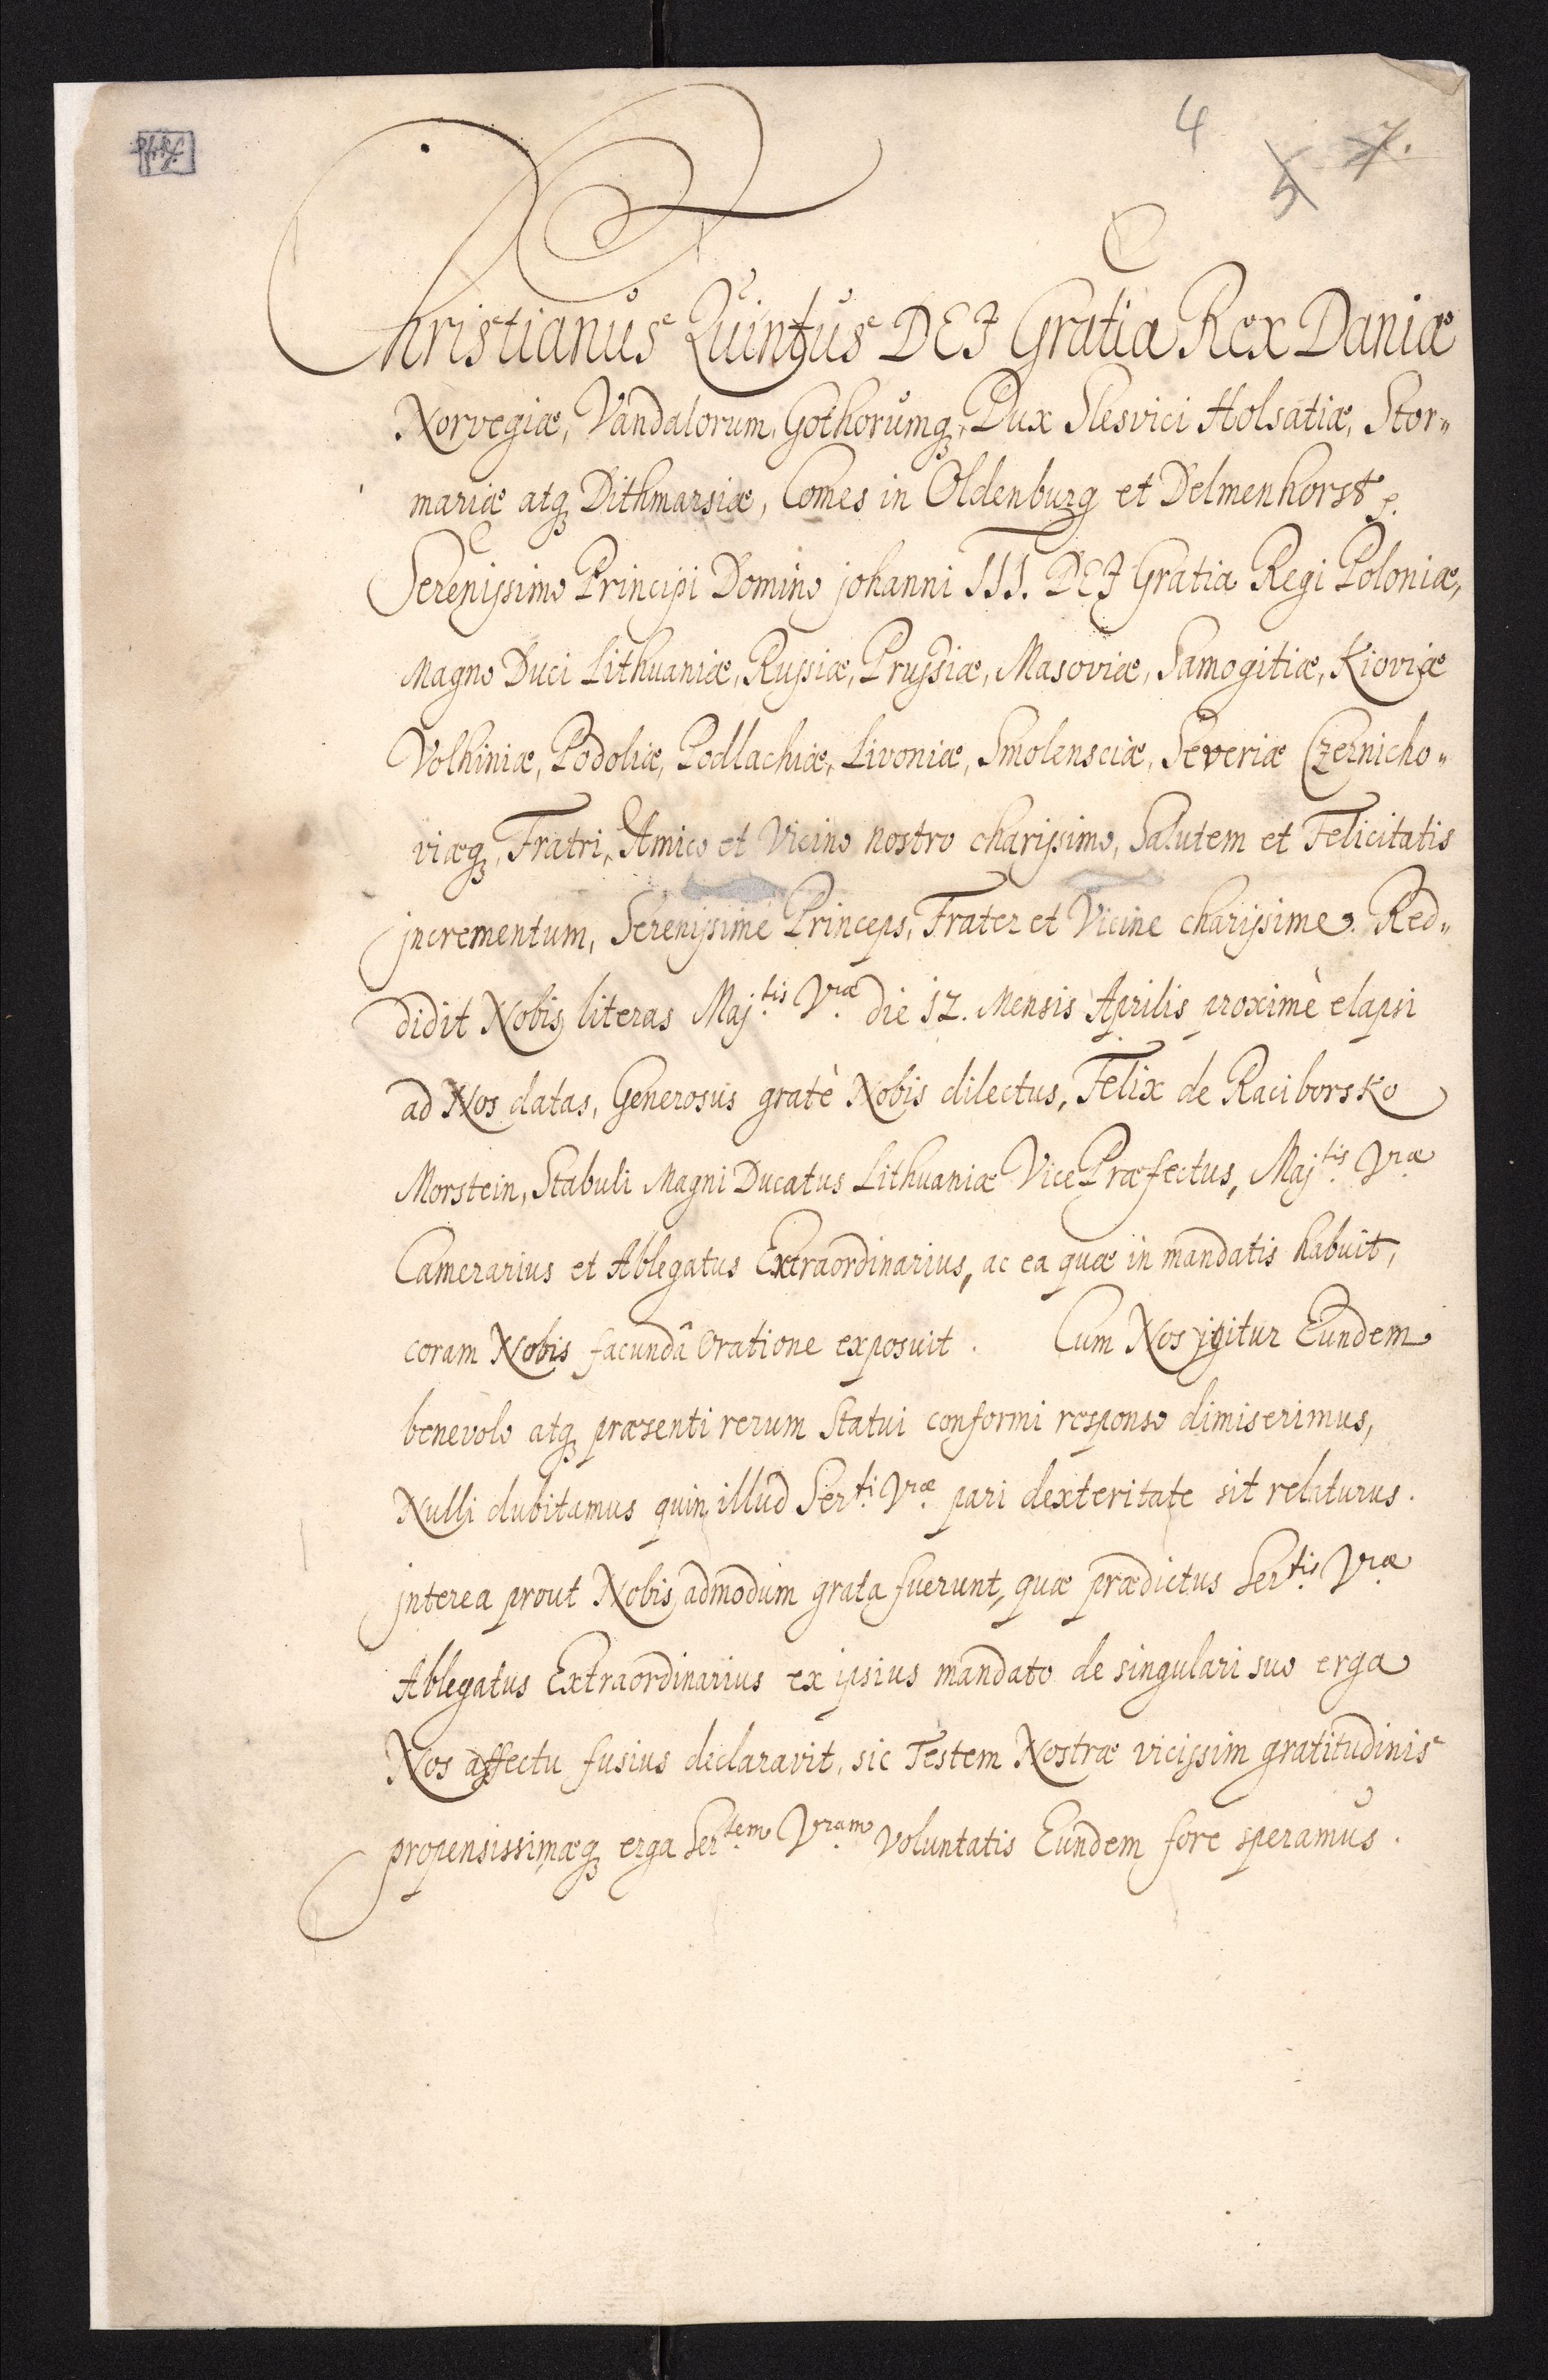 4
5
7.
Christianus Quintus DEJ Gratia Rex Daniæ
Norvegiæ, Vandalorum, Gothorumq, Dux Slesvici Holsatiæ, Stor„
mariæ atq Dithmarsiæ, Comes in Oldenburg et Delmenhorst p.
Serenissimo Principi Domino johanni III. DEJ Gratia Regi Poloniæ,
Magno Duci Lithuaniæ, Russiæ, Prussiæ, Masoviæ, Samogitiæ, Kioviæ
Volhiniæ, Podoliæ, Podlachiæ, Livoniæ, Smolensciæ, Severiæ Czernicho„
viæq, Fratri, Amico et Vicino nostro charissimo, Salutem et Felicitatis
jncrementum, Serenissime Princeps, Frater et Vicine charissime. Red„
didit Nobis literas Maj.tis V.ræ die 12. Mensis Aprilis proximè elapsi
ad Nos datas, Generosus gratè Nobis dilectus, Felix de Raciborsko
Morstein, Stabuli Magni Ducatus Lithuaniæ Vice Præfectus, Maj.tis V.ræ
Camerarius et Ablegatus Extraordinarius, ac ea quæ in mandatis habuit,
coram Nobis facundâ Oratione exposuit. Cum Nos igitur Eundem
benevolo atq præsenti rerum Statui conformi responso dimiserimus,
Nulli dubitamus quin illud Ser.ti V.ræ pari dexteritate sit relaturus.
jnterea prout Nobis admodum grata fuerunt, quæ prædictus Ser.tis V.ræ
Ablegatus Extraordinarius ex ipsius mandato de singulari suo erga
Nos affectu fusius declaravit, sic Testem Nostræ vicissim gratitudinis
propensissimæq erga Ser.tem V.ram voluntatis Eundem fore speramus.